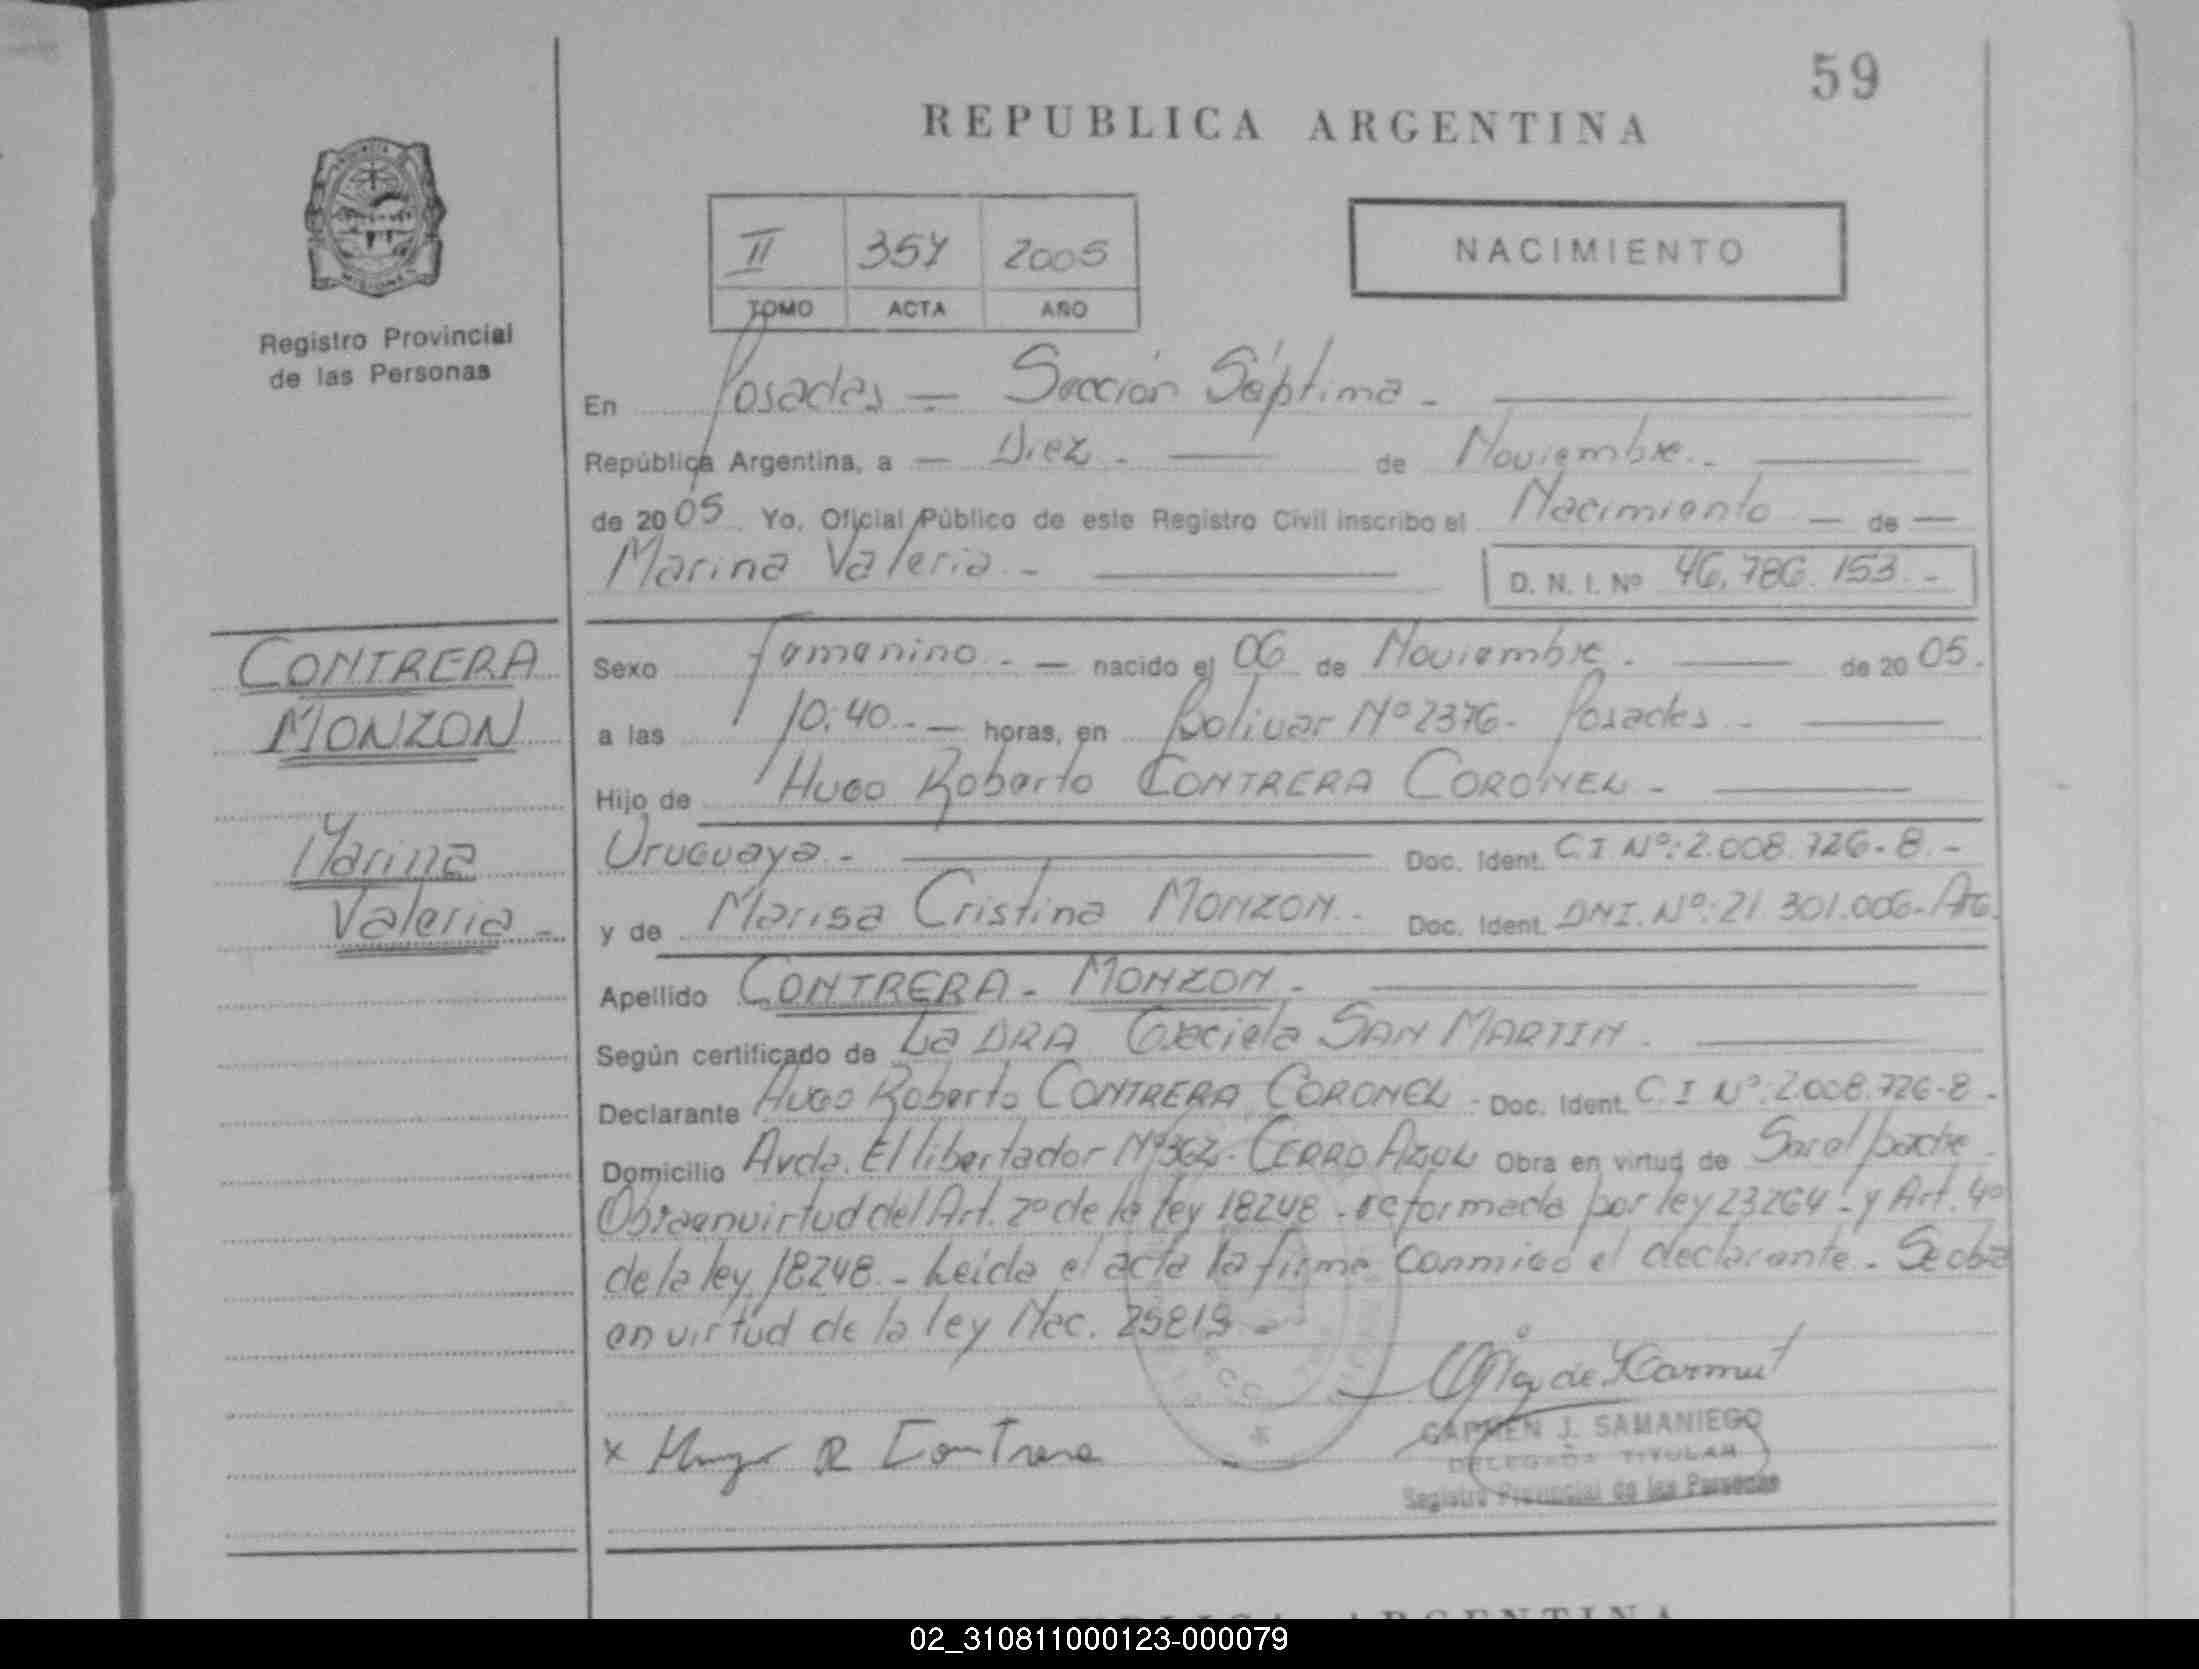 59
REPUBLICA ARGENTINA
II 357 2005
TOMO ACTA AÑO
NACIMIENTO
Registro Provincial
de las Personas
En Posadas - Sección Séptima -
República Argentina, a - Diez - de Noviembre -
de 2005 Yo, Oficial Público de este Registro Civil inscribo el Nacimiento - de -
Marina Valeria - D. N. I. Nº 46.786.153 -
CONTRERA
MONZON
Marina
Valeria -
Sexo femenino - - nacido el 06 de Noviembre - de 2005.
a las 10:40 - - horas, en Bolivar Nº 2376 - Posadas -
Hijo de Hugo Roberto CONTRERA CORONEL -
Uruguaya - Doc. Ident. C I Nº: 2.008.726-8 -
y de Marisa Cristina MONZON - Doc. Ident. DNI. Nº: 21 301.006- Arg.
Apellido CONTRERA - MONZON -
Según certificado de La DRA Graciela SAN MARTIN -
Declarante Hugo Roberto CONTRERA CORONEL - Doc. Ident. C I Nº: 2.008.726-8 -
Domicilio Avda. El libertador Nº 362 - CERRO AZUL Obra en virtud de Ser el padre -
Obra en virtud del Art. 2º de la ley 18248 - reformada por ley 23264 - y Art. 4º
de la ley 18248 - Leida el acta la firma conmigo el declarante - Se obra
en virtud de la ley Nac. 25819 -
x Hugo R Contrera
CARMEN J. SAMANIEGO
DELEGADA TITULAR
Registro Provincial de las Personas
REPUBLICA ARGENTINA
02_310811000123-000079